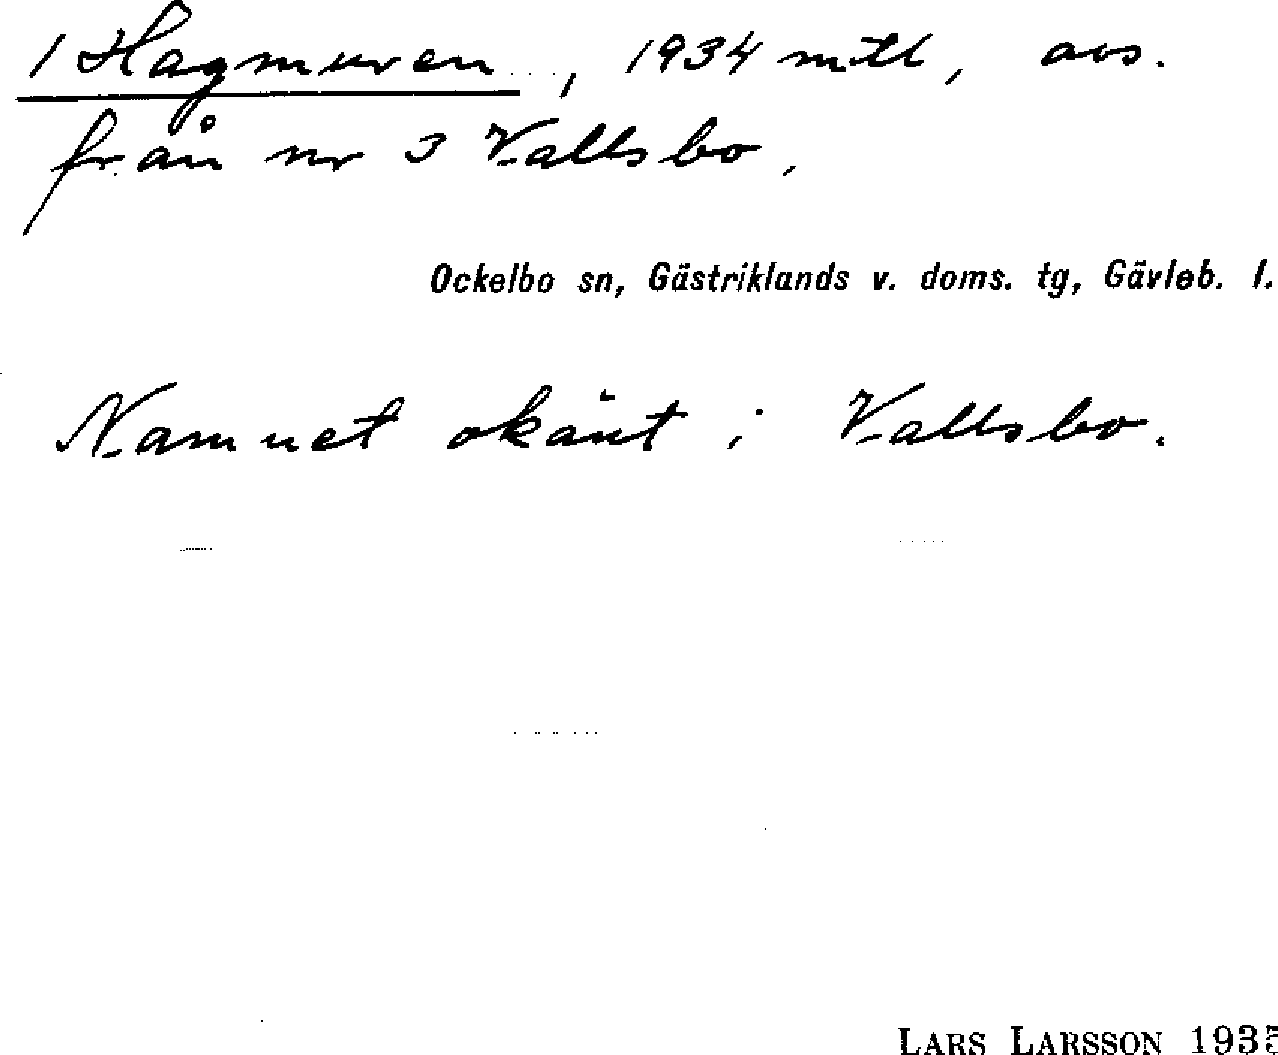 1 Hagmuren, 1934 mtl, avs.
från nr 3 Vallsbo.
Ockelbo sn, Gästriklands v. doms. tg, Gävleb. l.
Namnet okänt i Vallsbo.
LARS LARSSON 1935